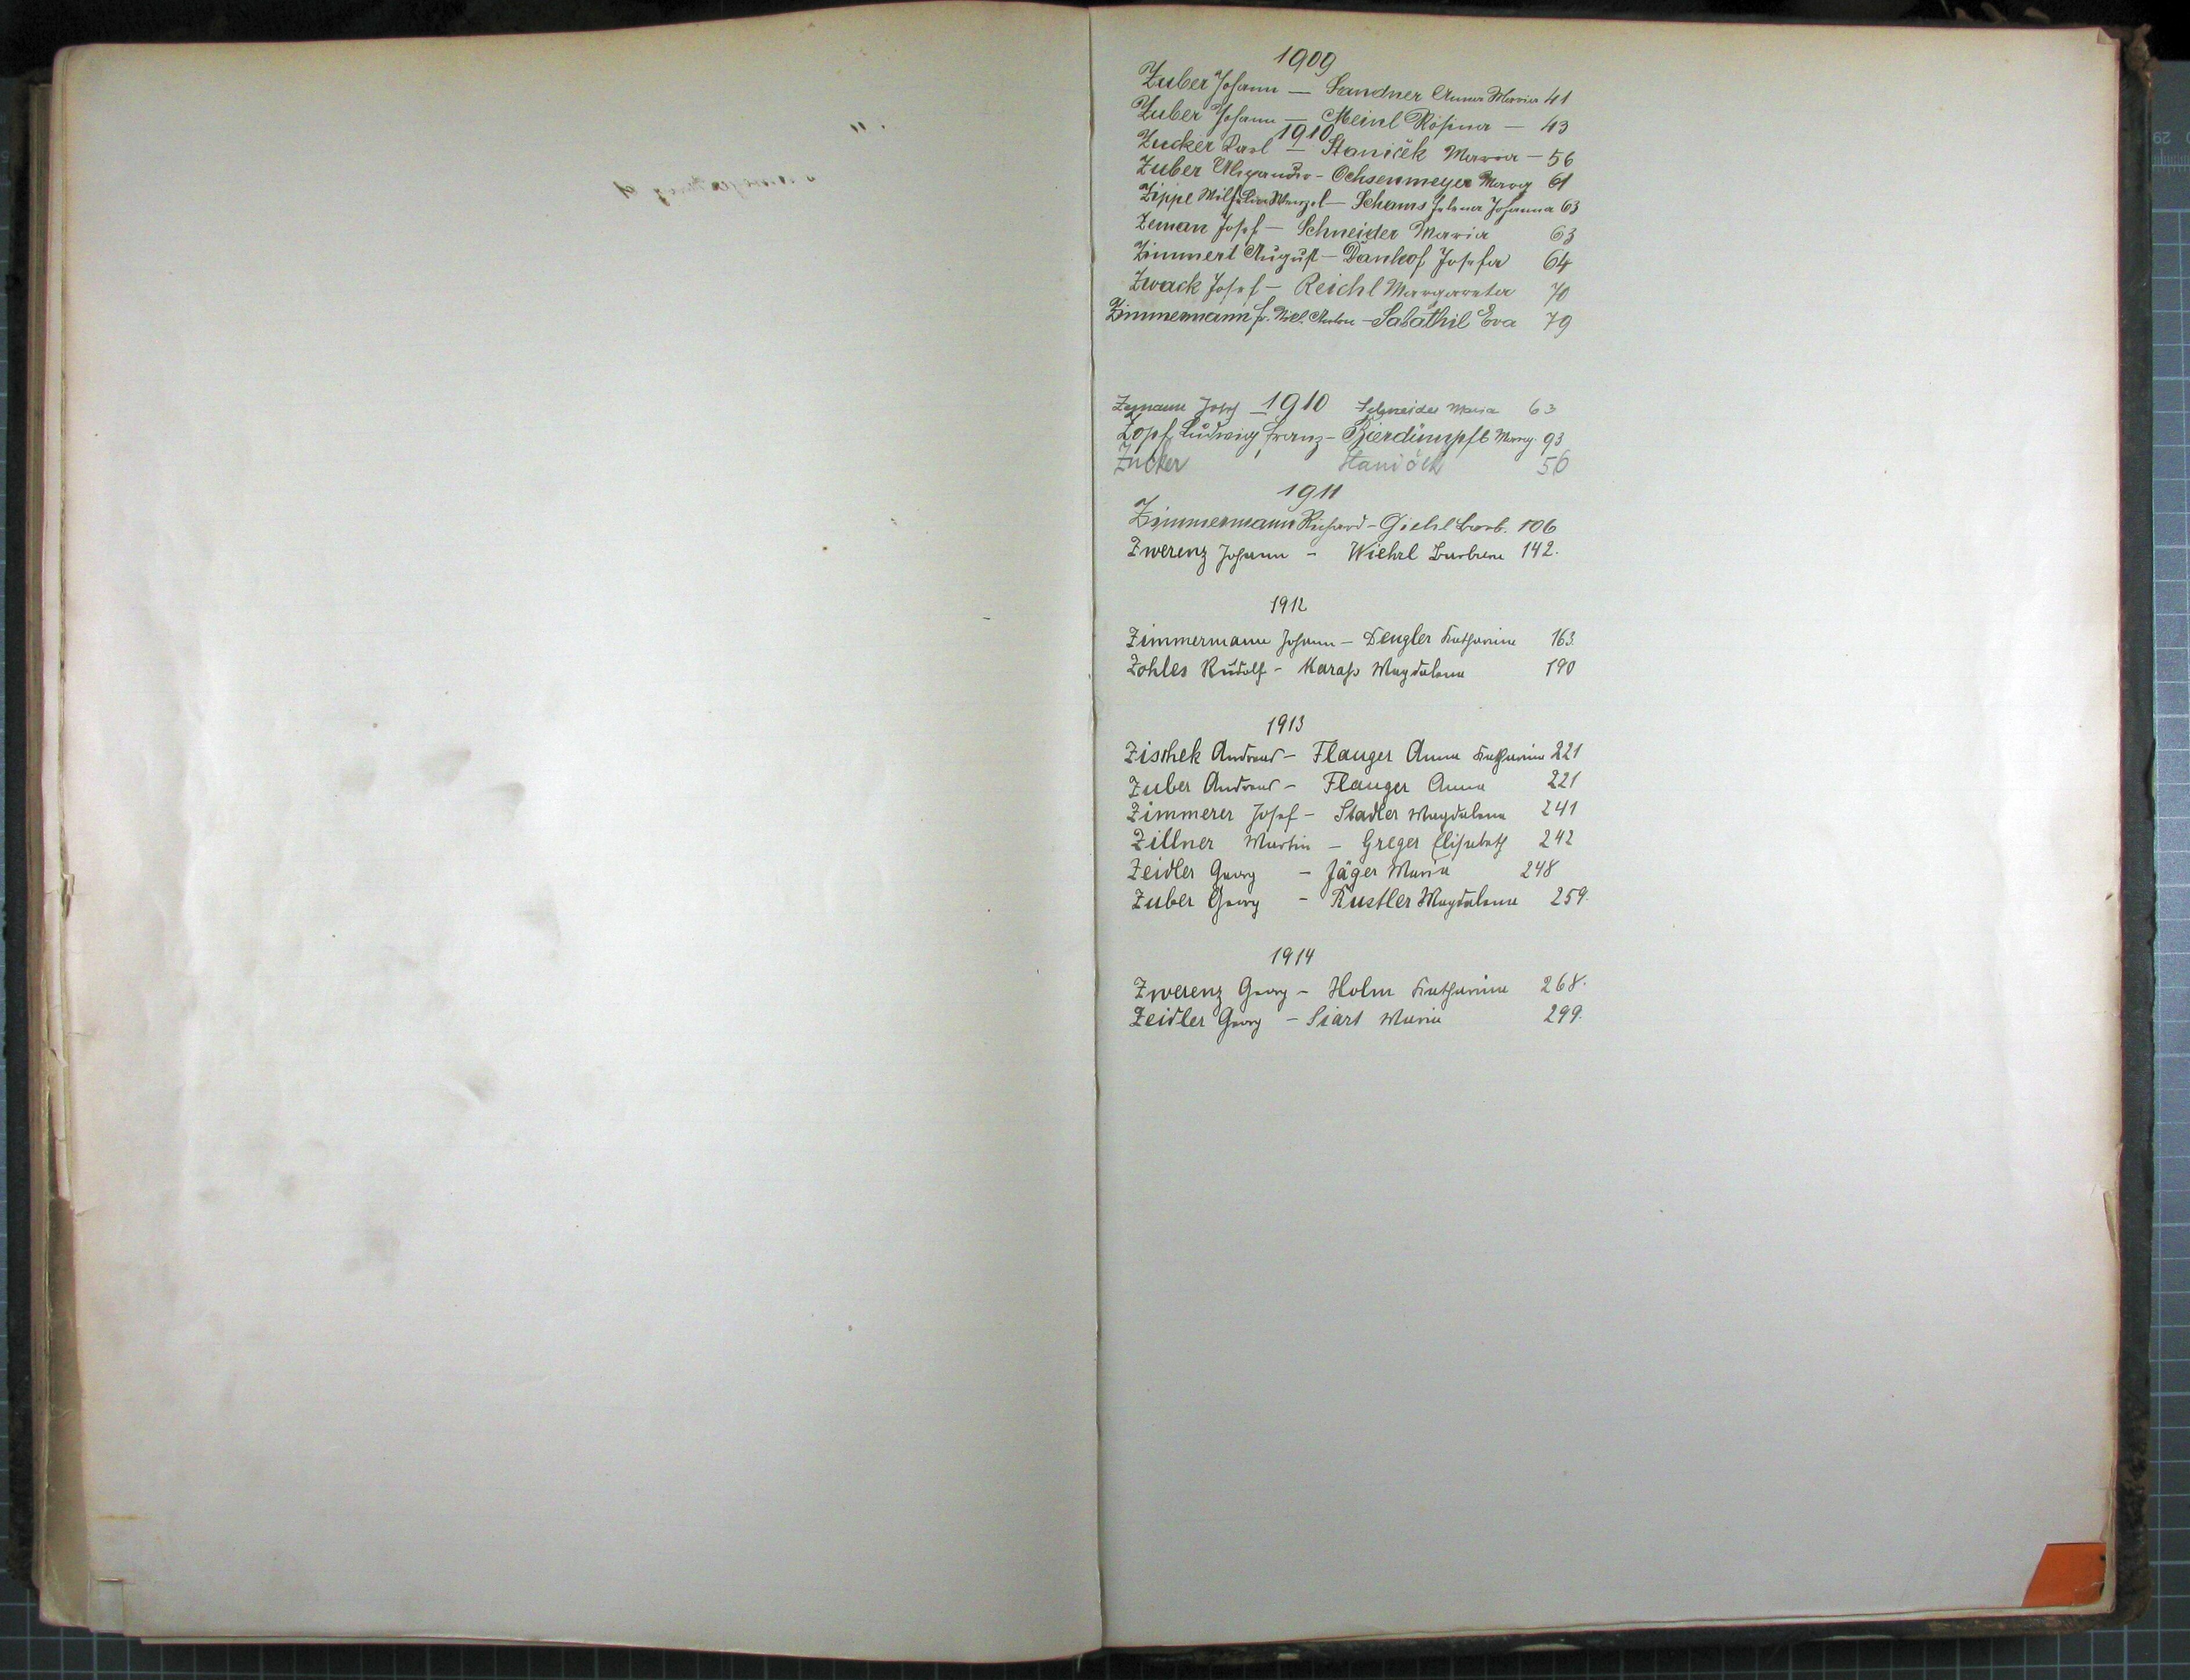 1909
Zuber Johann — Sandner Anna Maria 41
Zuber Johann — Meinl Rosina — 43
1910
Zucker Karl — Staniček Maria — 56
Zuber - Ochsenmeyer Marg 61
Zippe Wenzel — Schams Helena Johanna 63
Zeman Josef — Schneider Maria 63
Zimmert August — Danhof Josefa 64
Zwack Josef — Reichl Margareta 70
Zimmermann Anton — Sabathil Eva 79
1910
Zemann Josef — Schneider Maria 63
Zopf Ludwig Franz - Bierdümpfl Marg. 93
Zucker 56
1911
Zimmermann Richard - Giehl Barb. 106
Zwerenz Johann - Wiehrl Barbara 142.
1912
Zimmermann Johann — Dengler Katharina 163.
Zohles Rudolf - Karaß Magdalena 190
1913
Zischek Andreas - Flauger Anna Katharina 221
Zuber Andreas - Flauger Anna 221
Zimmerer Josef - Stadler Magdalena 241
Zillner Martin - Greger Elisabeth 242
Zeidler Georg - Jäger Maria 248
Zuber Georg - Rustler Magdalena 259.
1914
Zwerenz Georg - Holm Katharina 268.
Zeidler Georg - Siart Maria 299.